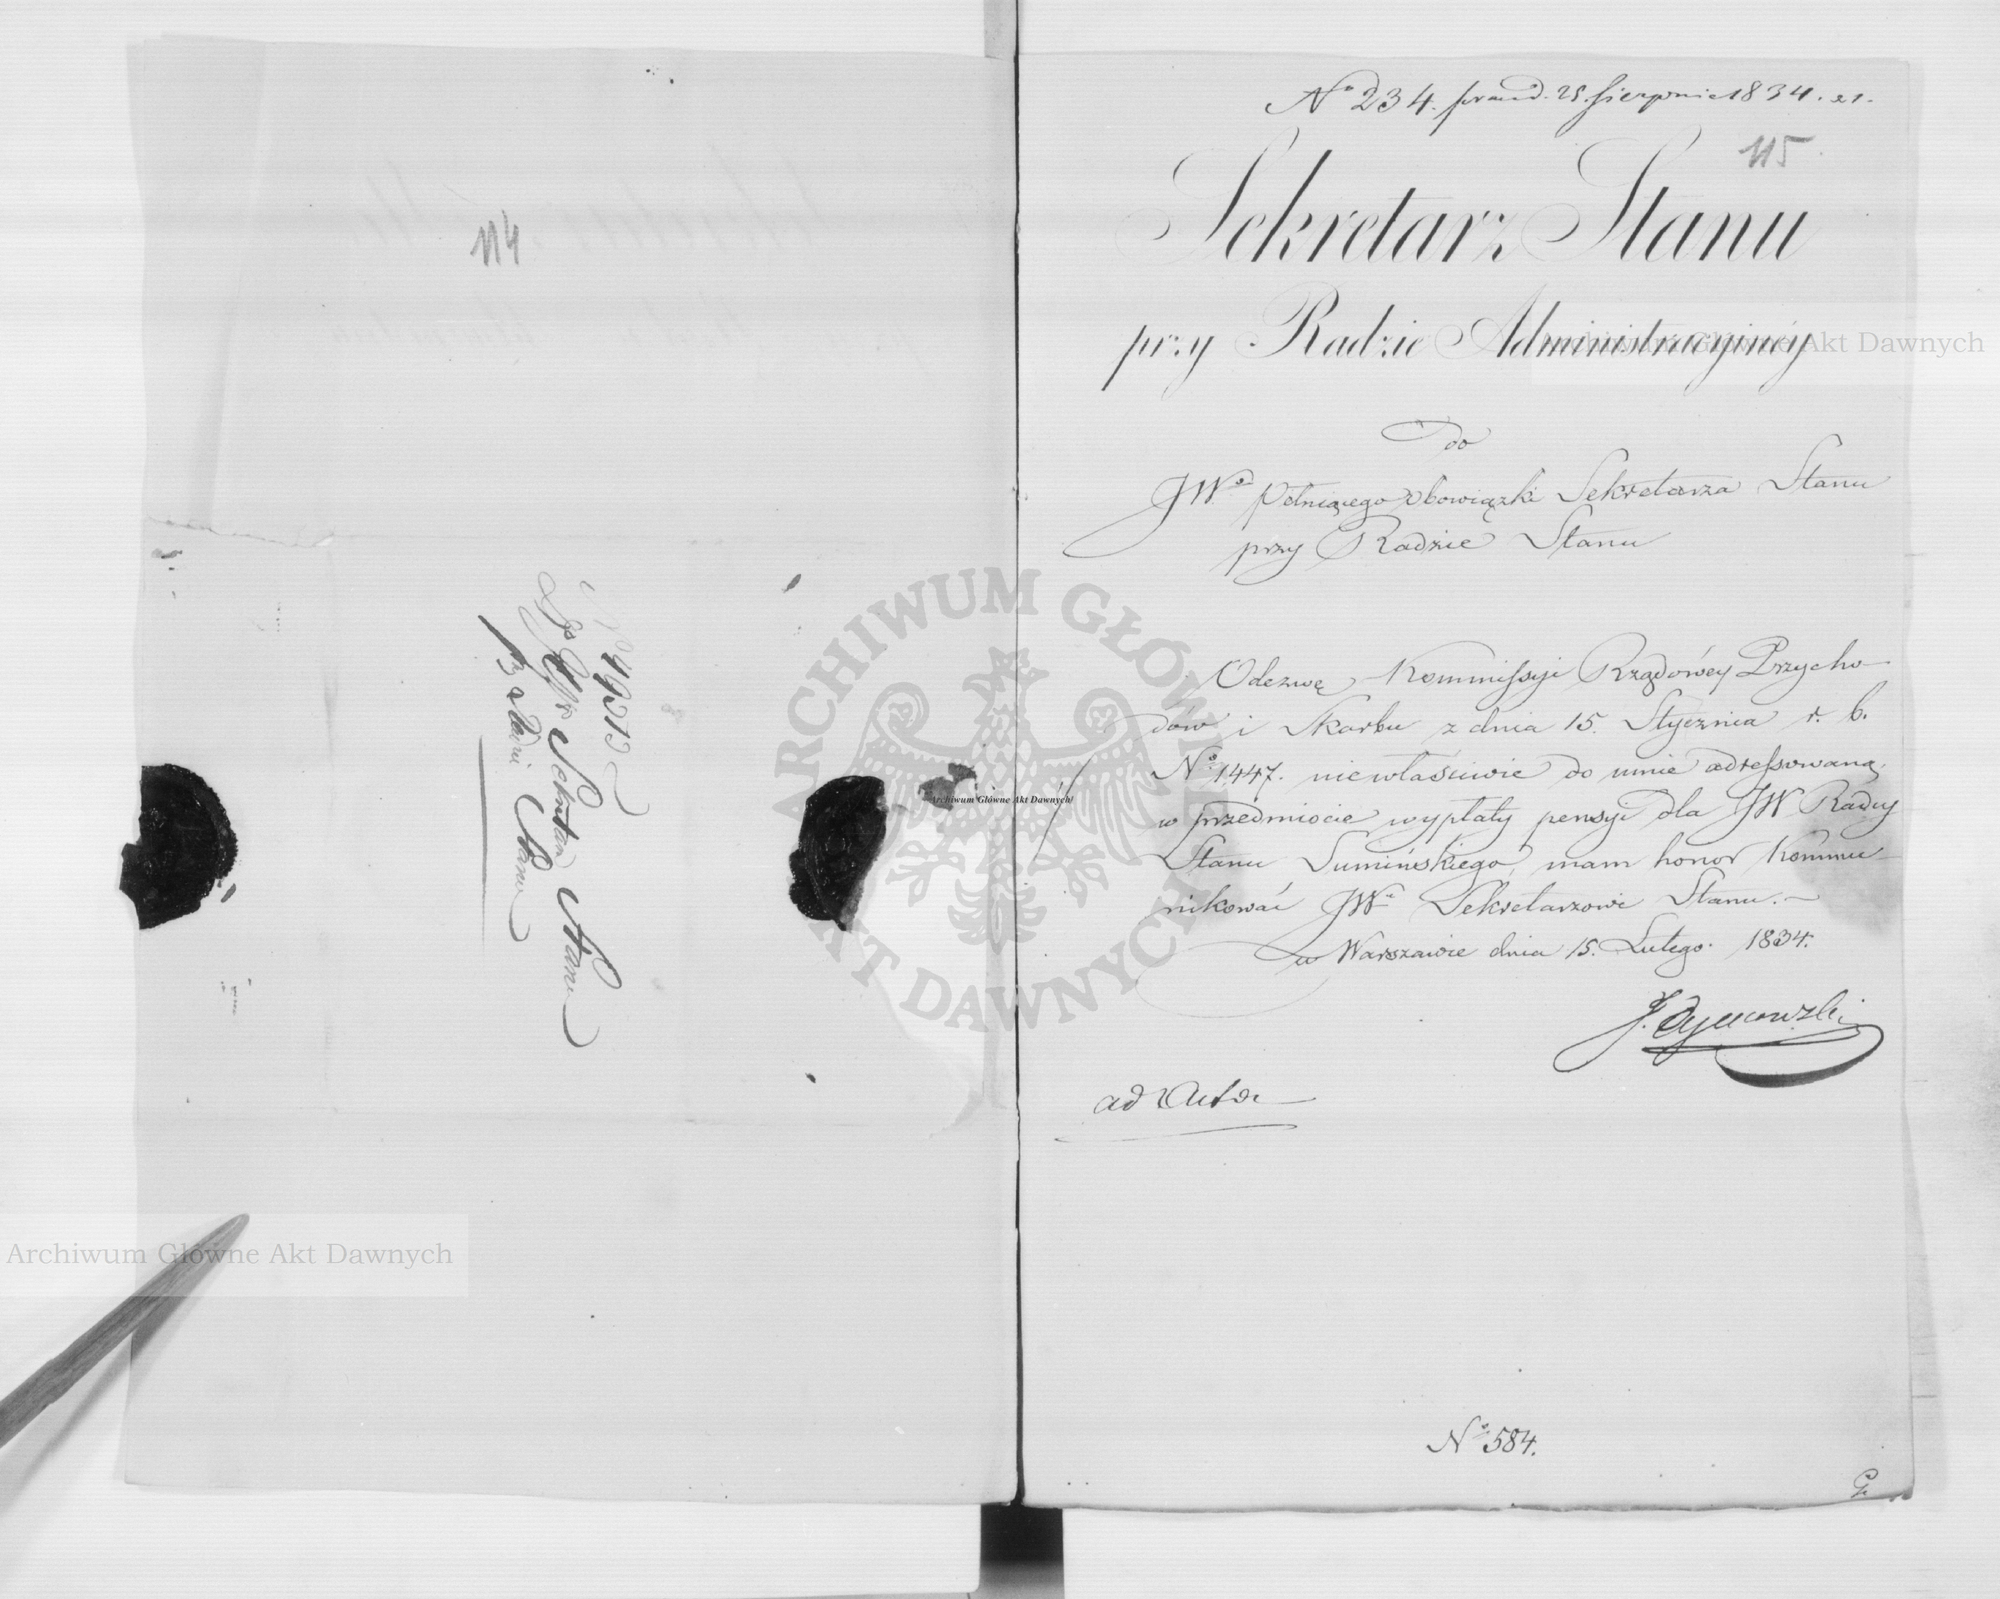 114
No 49313
Do JW Sekretarza Stanu
przy Radzie Stanu
No 234. 25. Sierpnia 1834. r.
115
Sekretarz Stanu
przy Radzie Administracyjnéy
do
JWo Pełniącego Obowiązki Sekretarza Stanu
przy Radzie Stanu
Odezwę Kommissyi Rządowéy Przycho-
dów i Skarbu z dnia 15. Stycznia r. b.
No 1447. niewłaściwie do mnie adressowaną,
w przedmiocie wypłaty pensyi dla JW Radcy
Stanu Sumińskiego, mam honor kommu-
nikować JWu Sekretarzowi Stanu.-
w Warszawie dnia 15. Lutego. 1834.
J. Tymowski
ad Acta
No 584.
Archiwum Główne Akt Dawnych
Archiwum Główne Akt Dawnych
ARCHIWUM GŁÓWNE AKT DAWNYCH
Archiwum Główne Akt Dawnych